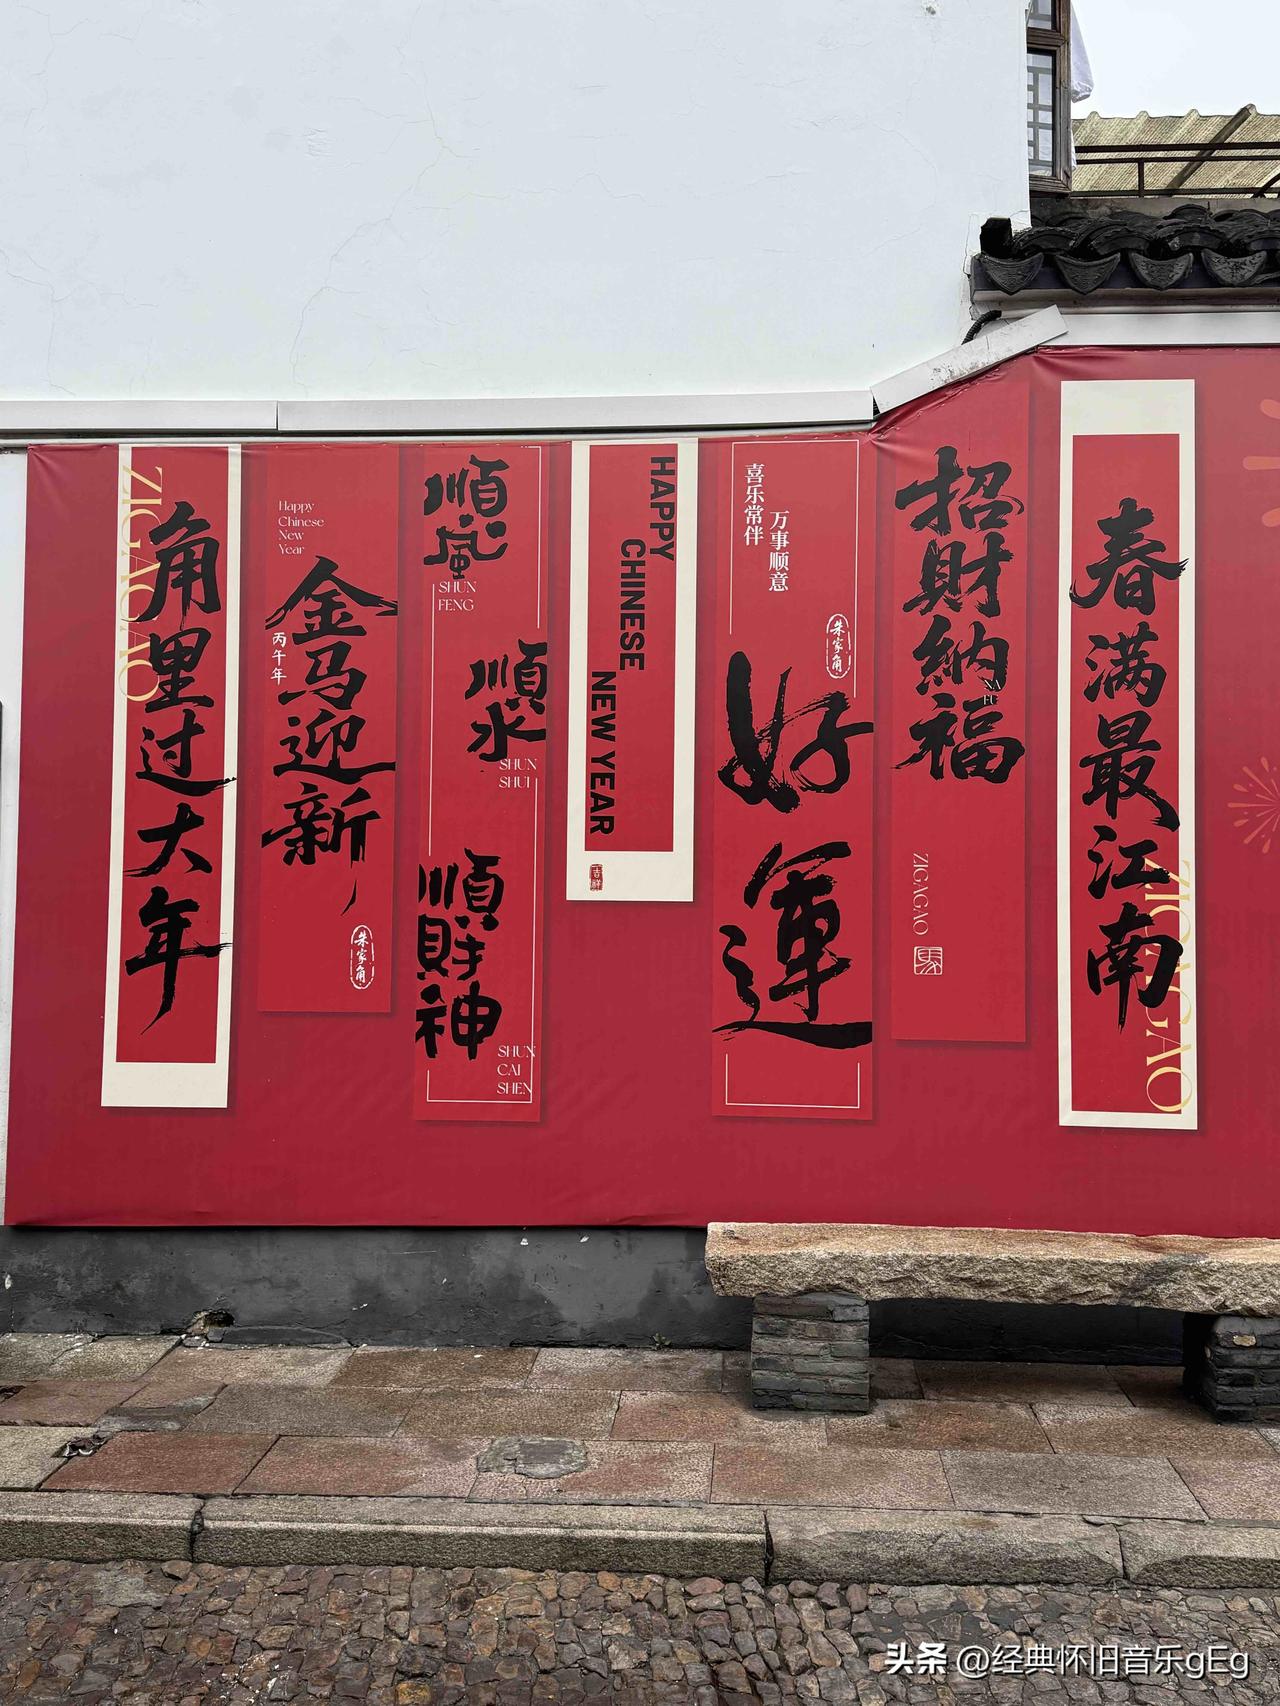 ZIGAGAO
角里过大年
Happy
Chinese
New
Year
金马迎新
丙午年
朱家角
順風
SHUN
FENG
順水
SHUN
SHUI
順財神
SHUN
CAI
SHEN
HAPPY
CHINESE
NEW YEAR
吉祥
喜乐常伴
万事顺意
朱家角
好運
招財納福
NA
FU
ZIGAGAO
春满最江南
ZIGAGAO
头条 @经典怀旧音乐gEg